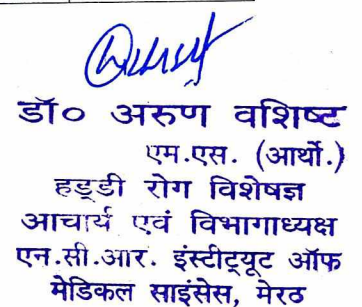 डॉ० अरुण वशिष्ट
एम.एस. (आर्थो.)
हड्डी रोग विशेषज्ञ
आचार्य एवं विभागाध्यक्ष
एन.सी.आर. इंस्टीट्यूट ऑफ
मेडिकल साइंसेस, मेरठ